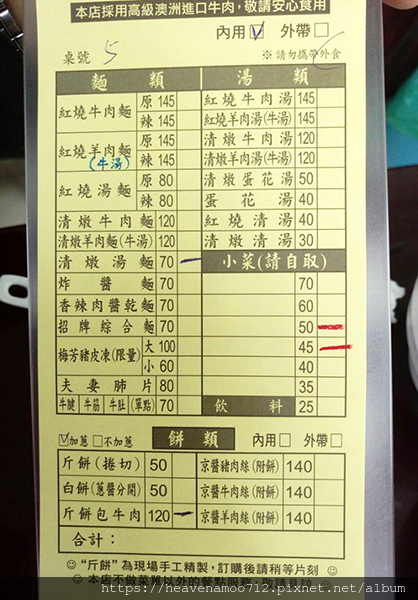 本店採用高級澳洲進口牛肉,敬請安心食用
內用☑ 外帶□
桌號 5 ※請勿攜帶外食
麵類 湯類
紅燒牛肉麵 原 145 紅燒牛肉湯 145
辣 145 紅燒羊肉湯(牛湯) 145
紅燒羊肉麵 原 145 清燉牛肉湯 120
(牛湯) 辣 145 清燉羊肉湯(牛湯) 120
紅燒湯麵 原 80 清燉蛋花湯 50
辣 80 蛋花湯 40
清燉牛肉麵 120 紅燒清湯 40
清燉羊肉麵(牛湯) 120 清燉清湯 30
清燉湯麵 70 小菜(請自取)
炸醬麵 70 70
香辣肉醬乾麵 70 60
招牌綜合麵 70 50
梅芳豬皮凍(限量) 大 100 45
小 60 40
夫妻肺片 80 35
牛腱 牛筋 牛肚(單點) 70 飲料 25
☑加蔥 □不加蔥 餅類 內用□ 外帶□
斤餅(捲切) 50 京醬豬肉絲(附餅) 140
白餅(蔥醬分開) 50 京醬牛肉絲(附餅) 140
斤餅包牛肉 120 京醬羊肉絲(附餅) 140
合計:
"斤餅"為現場手工精製,訂購後請稍等片刻
本店不做菜單以外的餐點服務,敬請見諒
https://heavenamoo712.pixnet.net/album